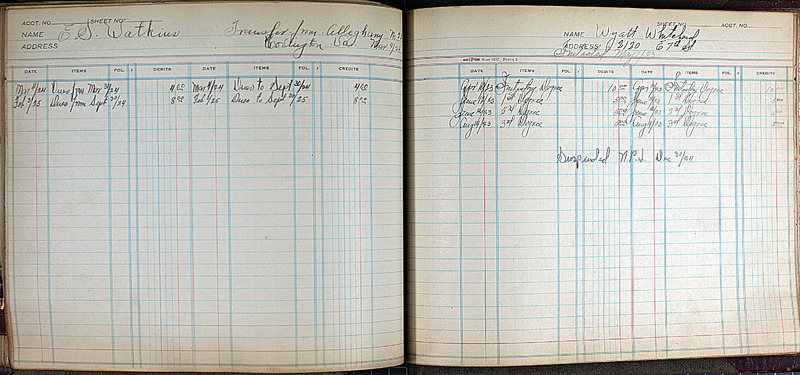 ACCT. NO. SHEET NO.
NAME E. S. Watkins Transfer from Alleghany No.
ADDRESS Covington Va. Mar
DATE ITEMS FOL. DEBITS DATE ITEMS FOL. CREDITS
Mar 9/24 Dues from Mar 24 4 00 Mar 9/24 Dues to Sept 30/24 4 00
Feb 2/25 Dues from Sept 30/24 8 00 Feb 2/25 Dues to Sept 30/25 8 00
SHEET NO.
NAME Wyatt ACCT. NO.
ADDRESS 2120 E 7th St
Initiated May
DATE ITEMS FOL. DEBITS DATE ITEMS FOL. CREDITS
/23 Degree 10 00 /23 Degree 10 00
June /23 1st Degree 5 00 June /23 1st Degree 5 00
June /23 2nd Degree June /23 2nd Degree
Aug /23 3rd Degree Aug /23 3rd Degree 5 00
Suspended N.P.D. Dec 30/24